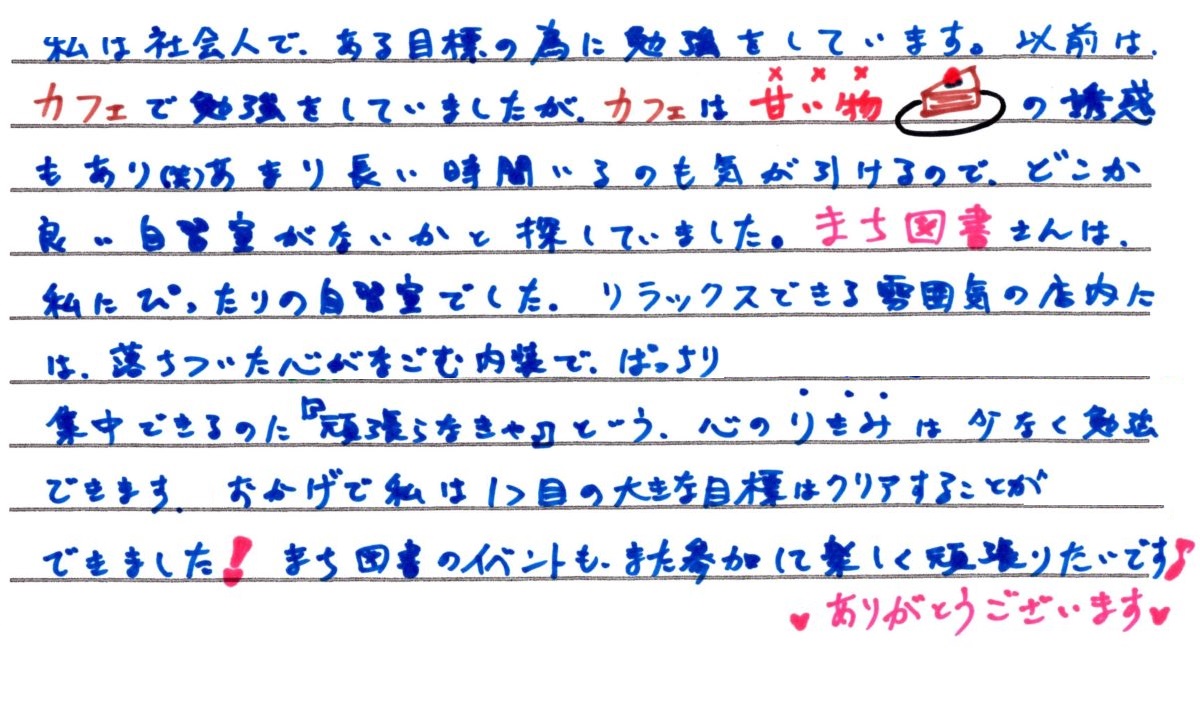 私は社会人で、ある目標の為に勉強をしています。以前は、
カフェで勉強をしていましたが、カフェは甘い物の誘惑
もあり(笑)あまり長い時間いるのも気が引けるので、どこか
良い自習室がないかと探していました。まち図書さんは、
私にぴったりの自習室でした。リラックスできる雰囲気の店内に
は、落ちついた心がなごむ内装で、ばっちり
集中できるのに『頑張らなきゃ』という、心のりきみは少なく勉強
できます。おかげで私は1つ目の大きな目標はクリアすることが
できました!まち図書のイベントも、また参加して楽しく頑張りたいです♪
♥ありがとうございます♥